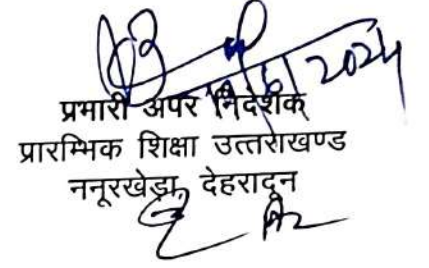 प्रभारी अपर निदेशक
प्रारम्भिक शिक्षा उत्तराखण्ड
ननूरखेड़ा, देहरादून